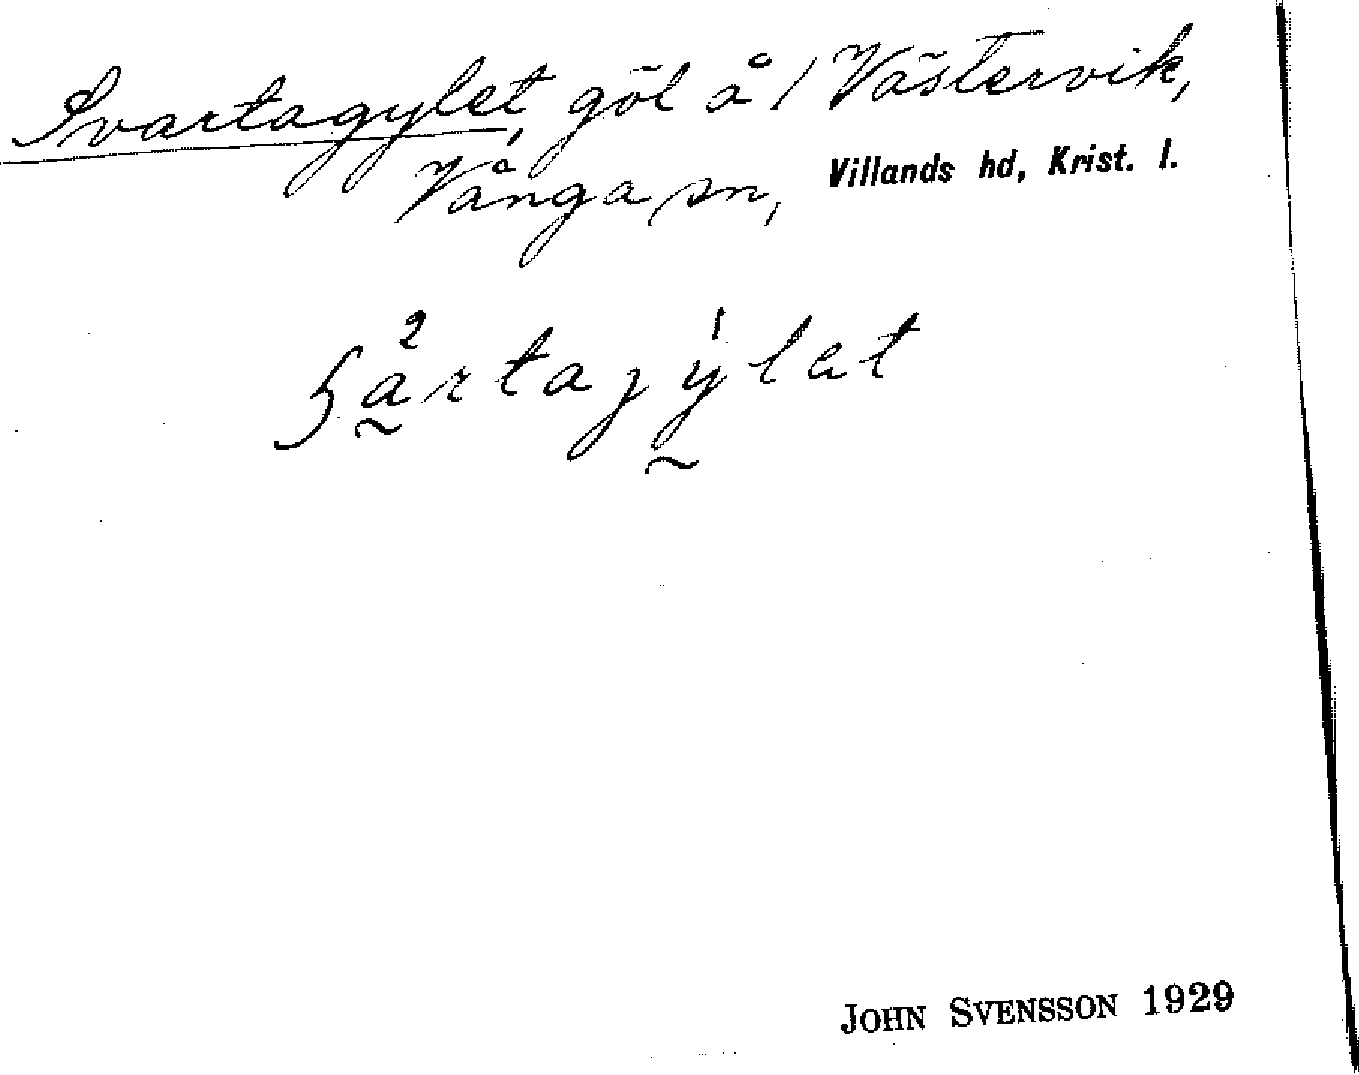 Svartagylet, göl å 1 Västervik,
Vånga sn, Villands hd, Krist. l.
JOHN SVENSSON 1929